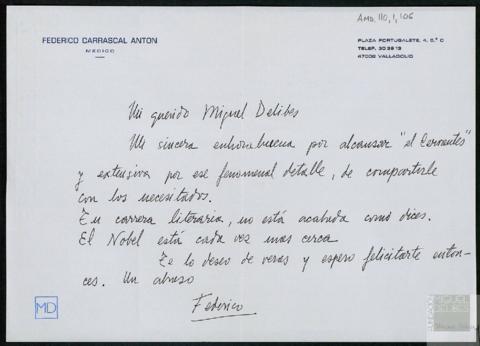 AMD, 110, 1, 106
FEDERICO CARRASCAL ANTON
MEDICO
PLAZA PORTUGALETE, 4, 5.º C
TELEF. 30 39 13
47002 VALLADOLID
Mi querido Miguel Delibes
Mi sincera enhorabuena por alcansar "el Cervantes"
y extensiva por ese fenomenal detalle, de compartirle
con los necesitados.
Tu carrera literaria, no está acabada como dices.
El Nobel está cada vez mas cerca
Te lo deseo de veras y espero felicitarte enton-
ces. Un abrazo
Federico
MD